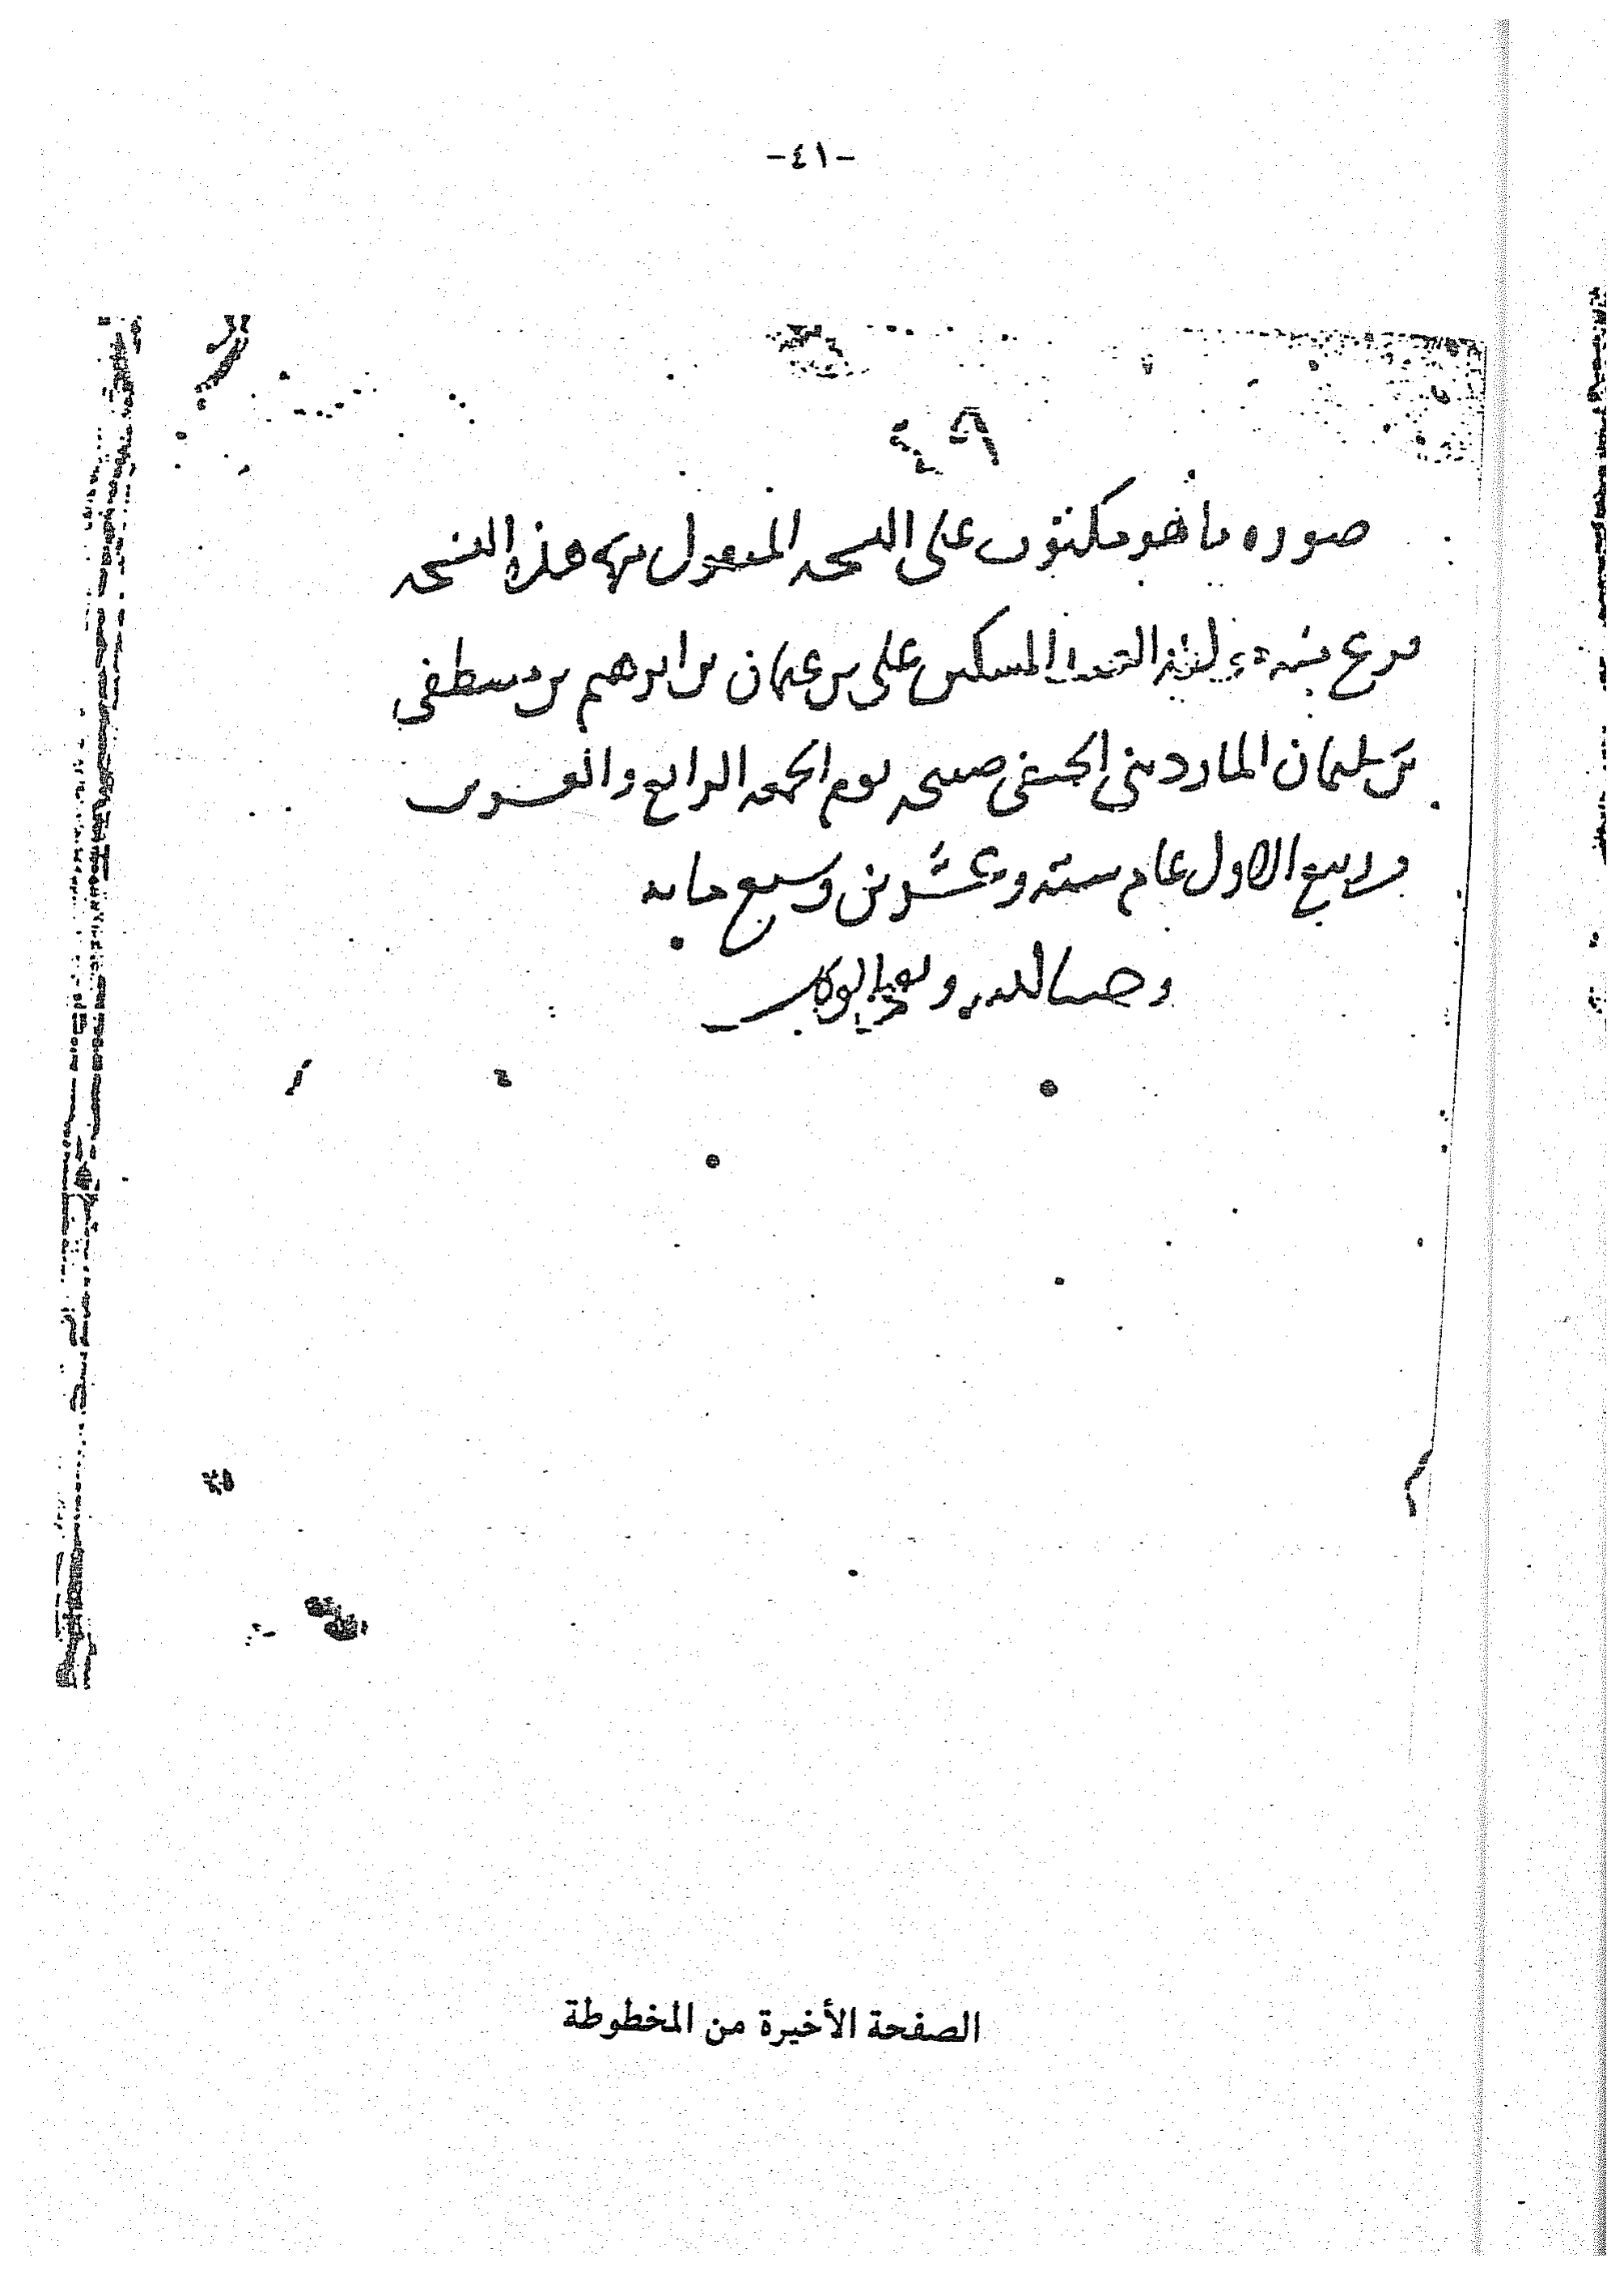 -٤١-
صوره ما هو مكتوب على النسخه المنقول منها هذه النسخه
فرغ منه المسكين على بن عثمان بن ابرهيم بن مصطفى
بن سليمان الماردينى الحنفى صبيحه يوم الجمعه الرابع والعشرين
من ربيع الاول عام سته وعشرين وسبع مايه
وحسبنا الله ونعم الوكيل
الصفحة الأخيرة من المخطوطة